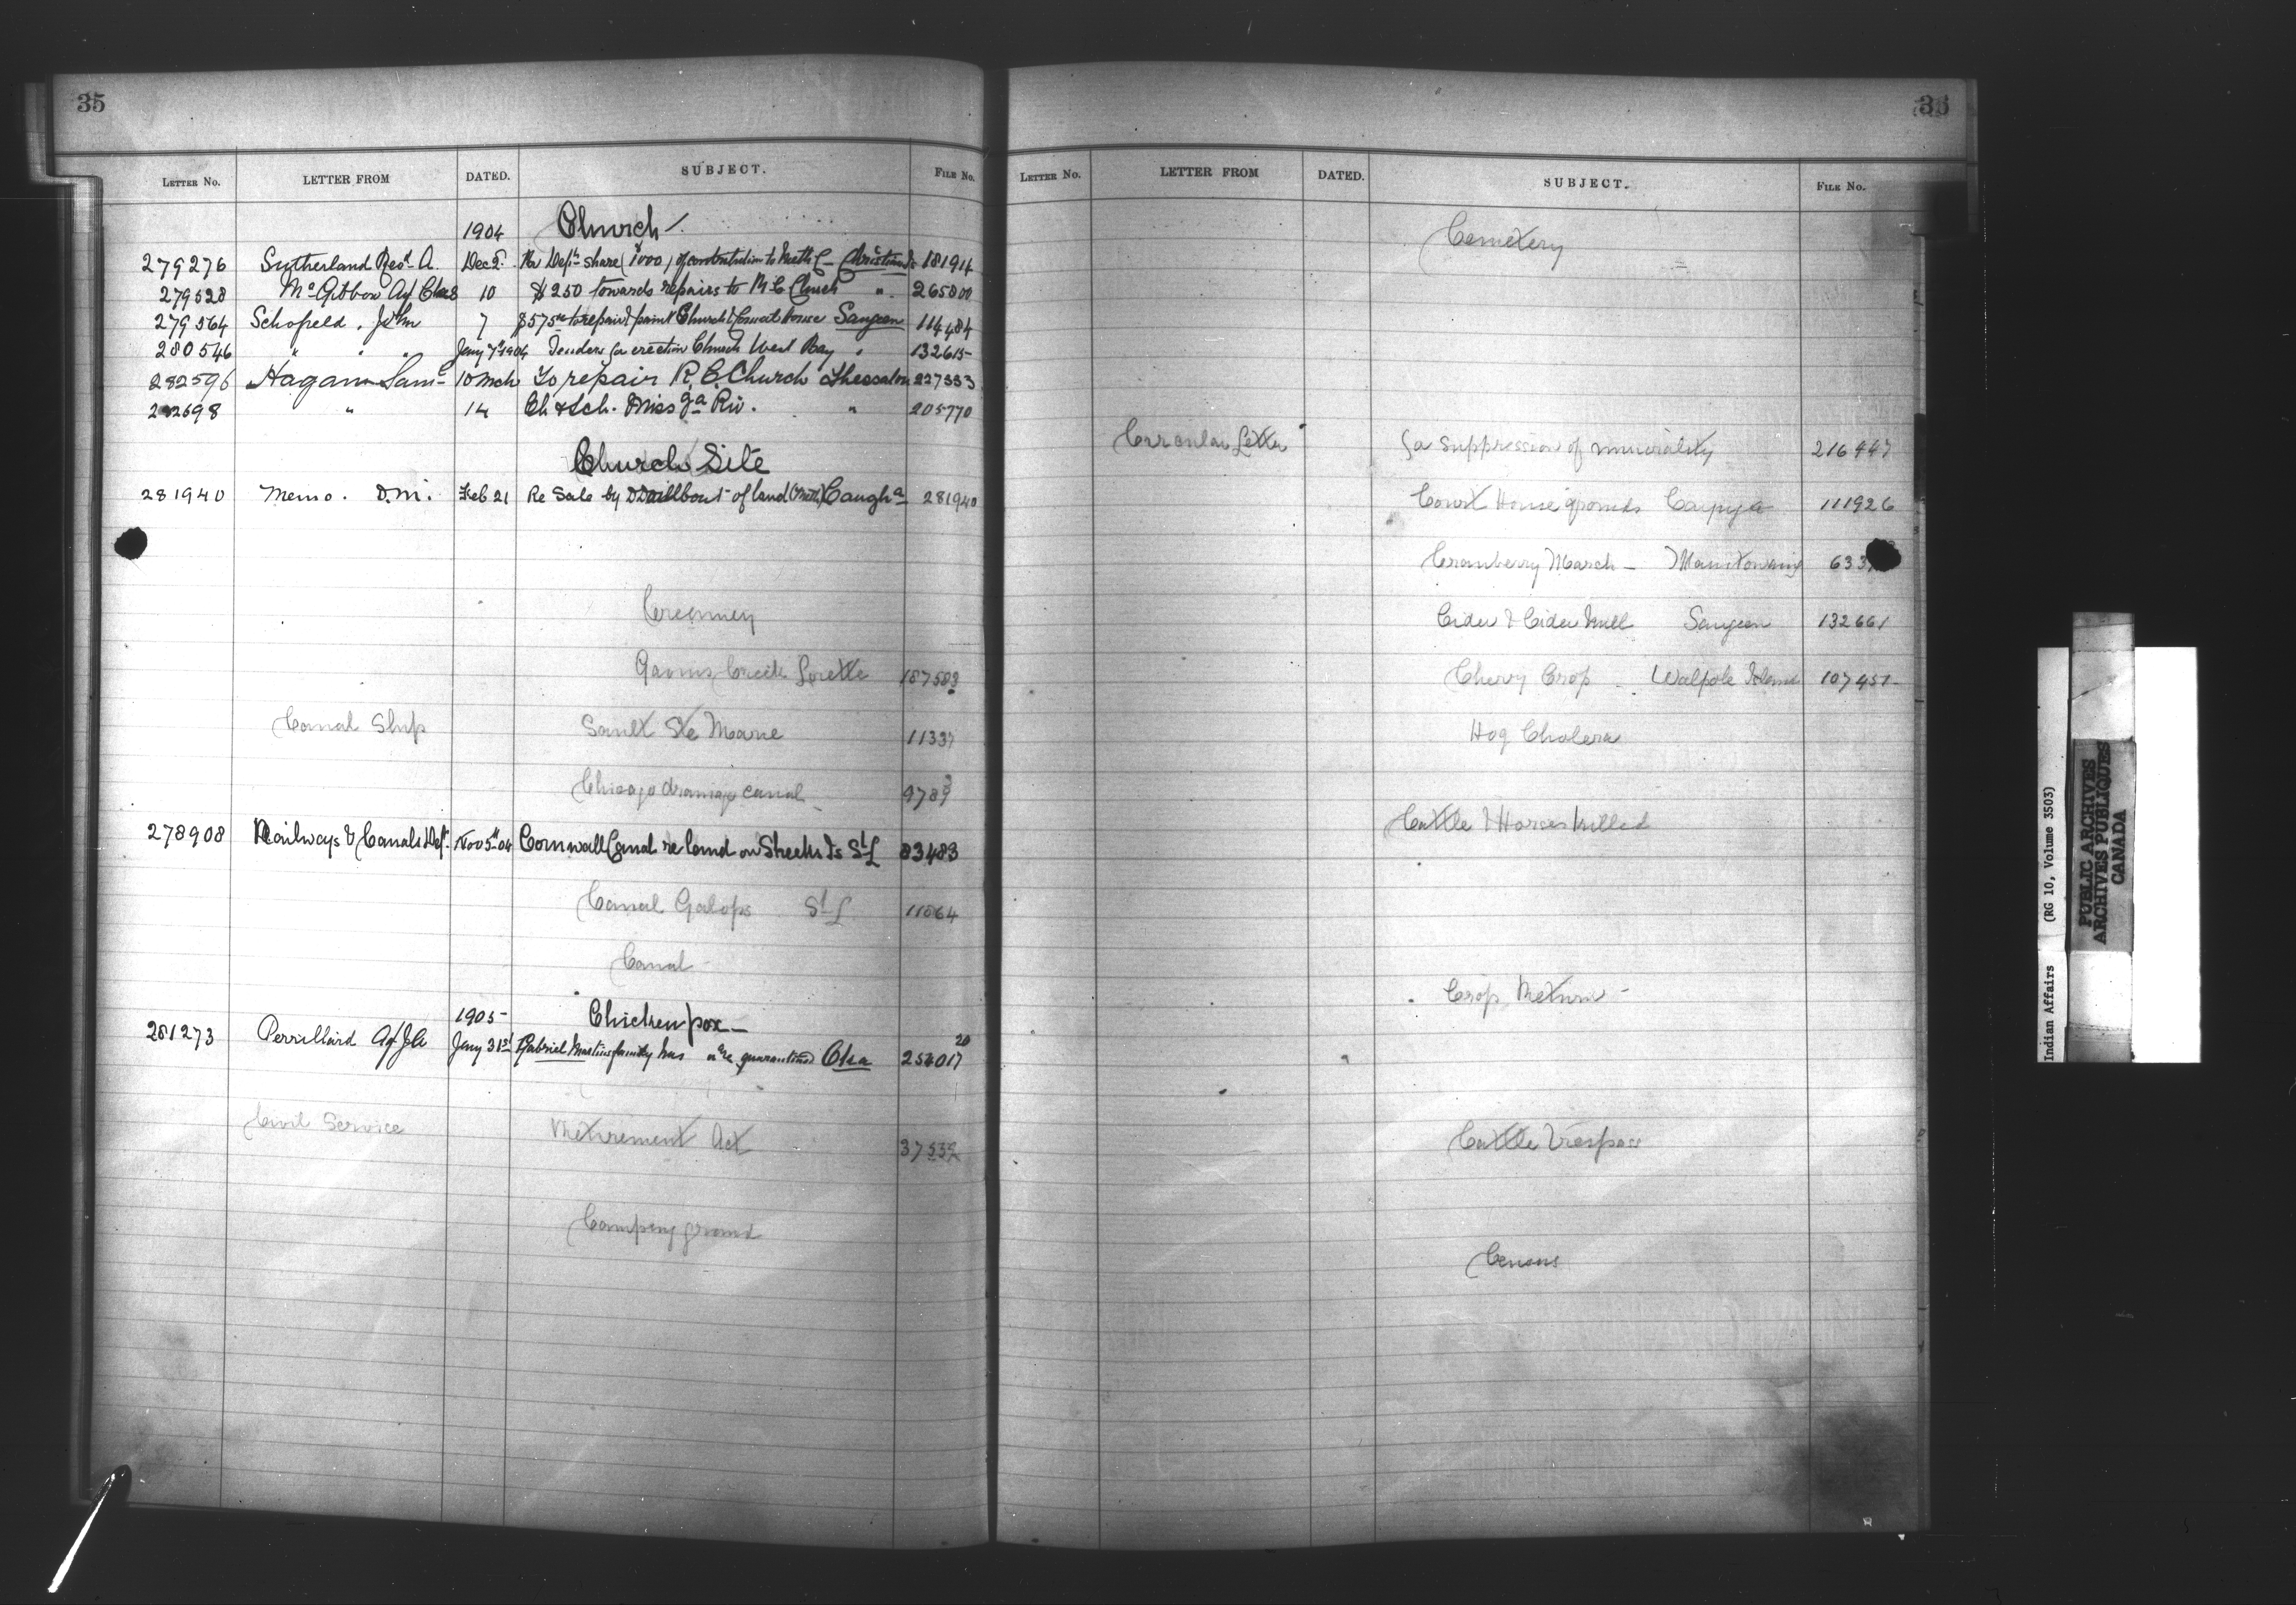 35
LETTER No. LETTER FROM DATED. SUBJECT. FILE No.
1904 Church
279276 Sutherland Revd A. Dec 5. Re Dept share (1000) of contribution to Meth C- Christian Is 181914
279528 McGibbon Ag Chas 10 $250 towards repairs to R C Church " 265800
279564 Schofield, John 7 $575 to repair & paint Church & Council house Saugeen 114484
280546 " " " Jany 7th 1904 Tenders for erection Church West Bay " 132615
282596 Hagan Saml 10 Mch To repair R.C. Church Thessalon 227353
282698 " 14 Ch & Sch. Miss ga Riv. " 205770
Church Site
281940 Memo. D.M. Feb 21 Re Sale by D Daillbout of land (Meth) Caugha 281940
Creamery
Lorette 187583
Canal Ship Sault Ste Marie 11337
Chicago drainage canal 9789
278908 Railways & Canals Dept. Nov 5th 04 Cornwall Canal re land on Sheeks Is St L 83483
Canal Galops St L 11064
Canal
1905 Chicken pox
281273 Perrillard Ag JA Jany 31st Gabriel Martins family has quarantined Oka 254017 20
Civil Service Retirement Act 37539
Camping ground
36
LETTER No. LETTER FROM DATED. SUBJECT. FILE No.
Cemetery
Circular Letter for Suppression of immorality 216447
Court House grounds Cayuga 111926
Cranberry Marsh - Manitowaning 633
Cider & Cider Mill Saugeen 132661
Cherry Crop - Walpole Island 107451
Hog Cholera
Cattle & Horses killed
Crop Return -
Cattle Trespass
Census
Indian Affairs (RG 10, Volume 3503)
PUBLIC ARCHIVES
ARCHIVES PUBLIQUES
CANADA